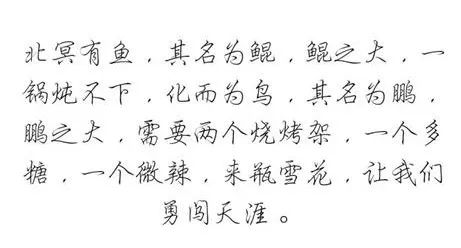 北冥有鱼，其名为鲲，鲲之大，一
锅炖不下，化而为鸟，其名为鹏，
鹏之大，需要两个烧烤架，一个多
糖，一个微辣，来瓶雪花，让我们
勇闯天涯。